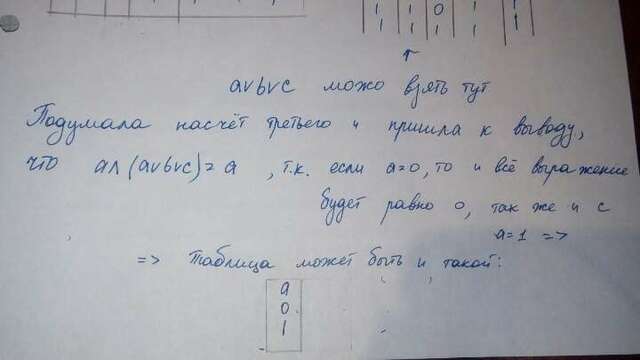 1 1 0 1 1
1 1 1 1 1
a∨b∨c можо взять тут
Подумала насчёт третьего и пришла к выводу,
что a∧(a∨b∨c)=a, т.к. если a=0, то и всё выражение
будет равно 0, так же и с
a=1 =>
=> Таблица может быть и такой:
a
0
1